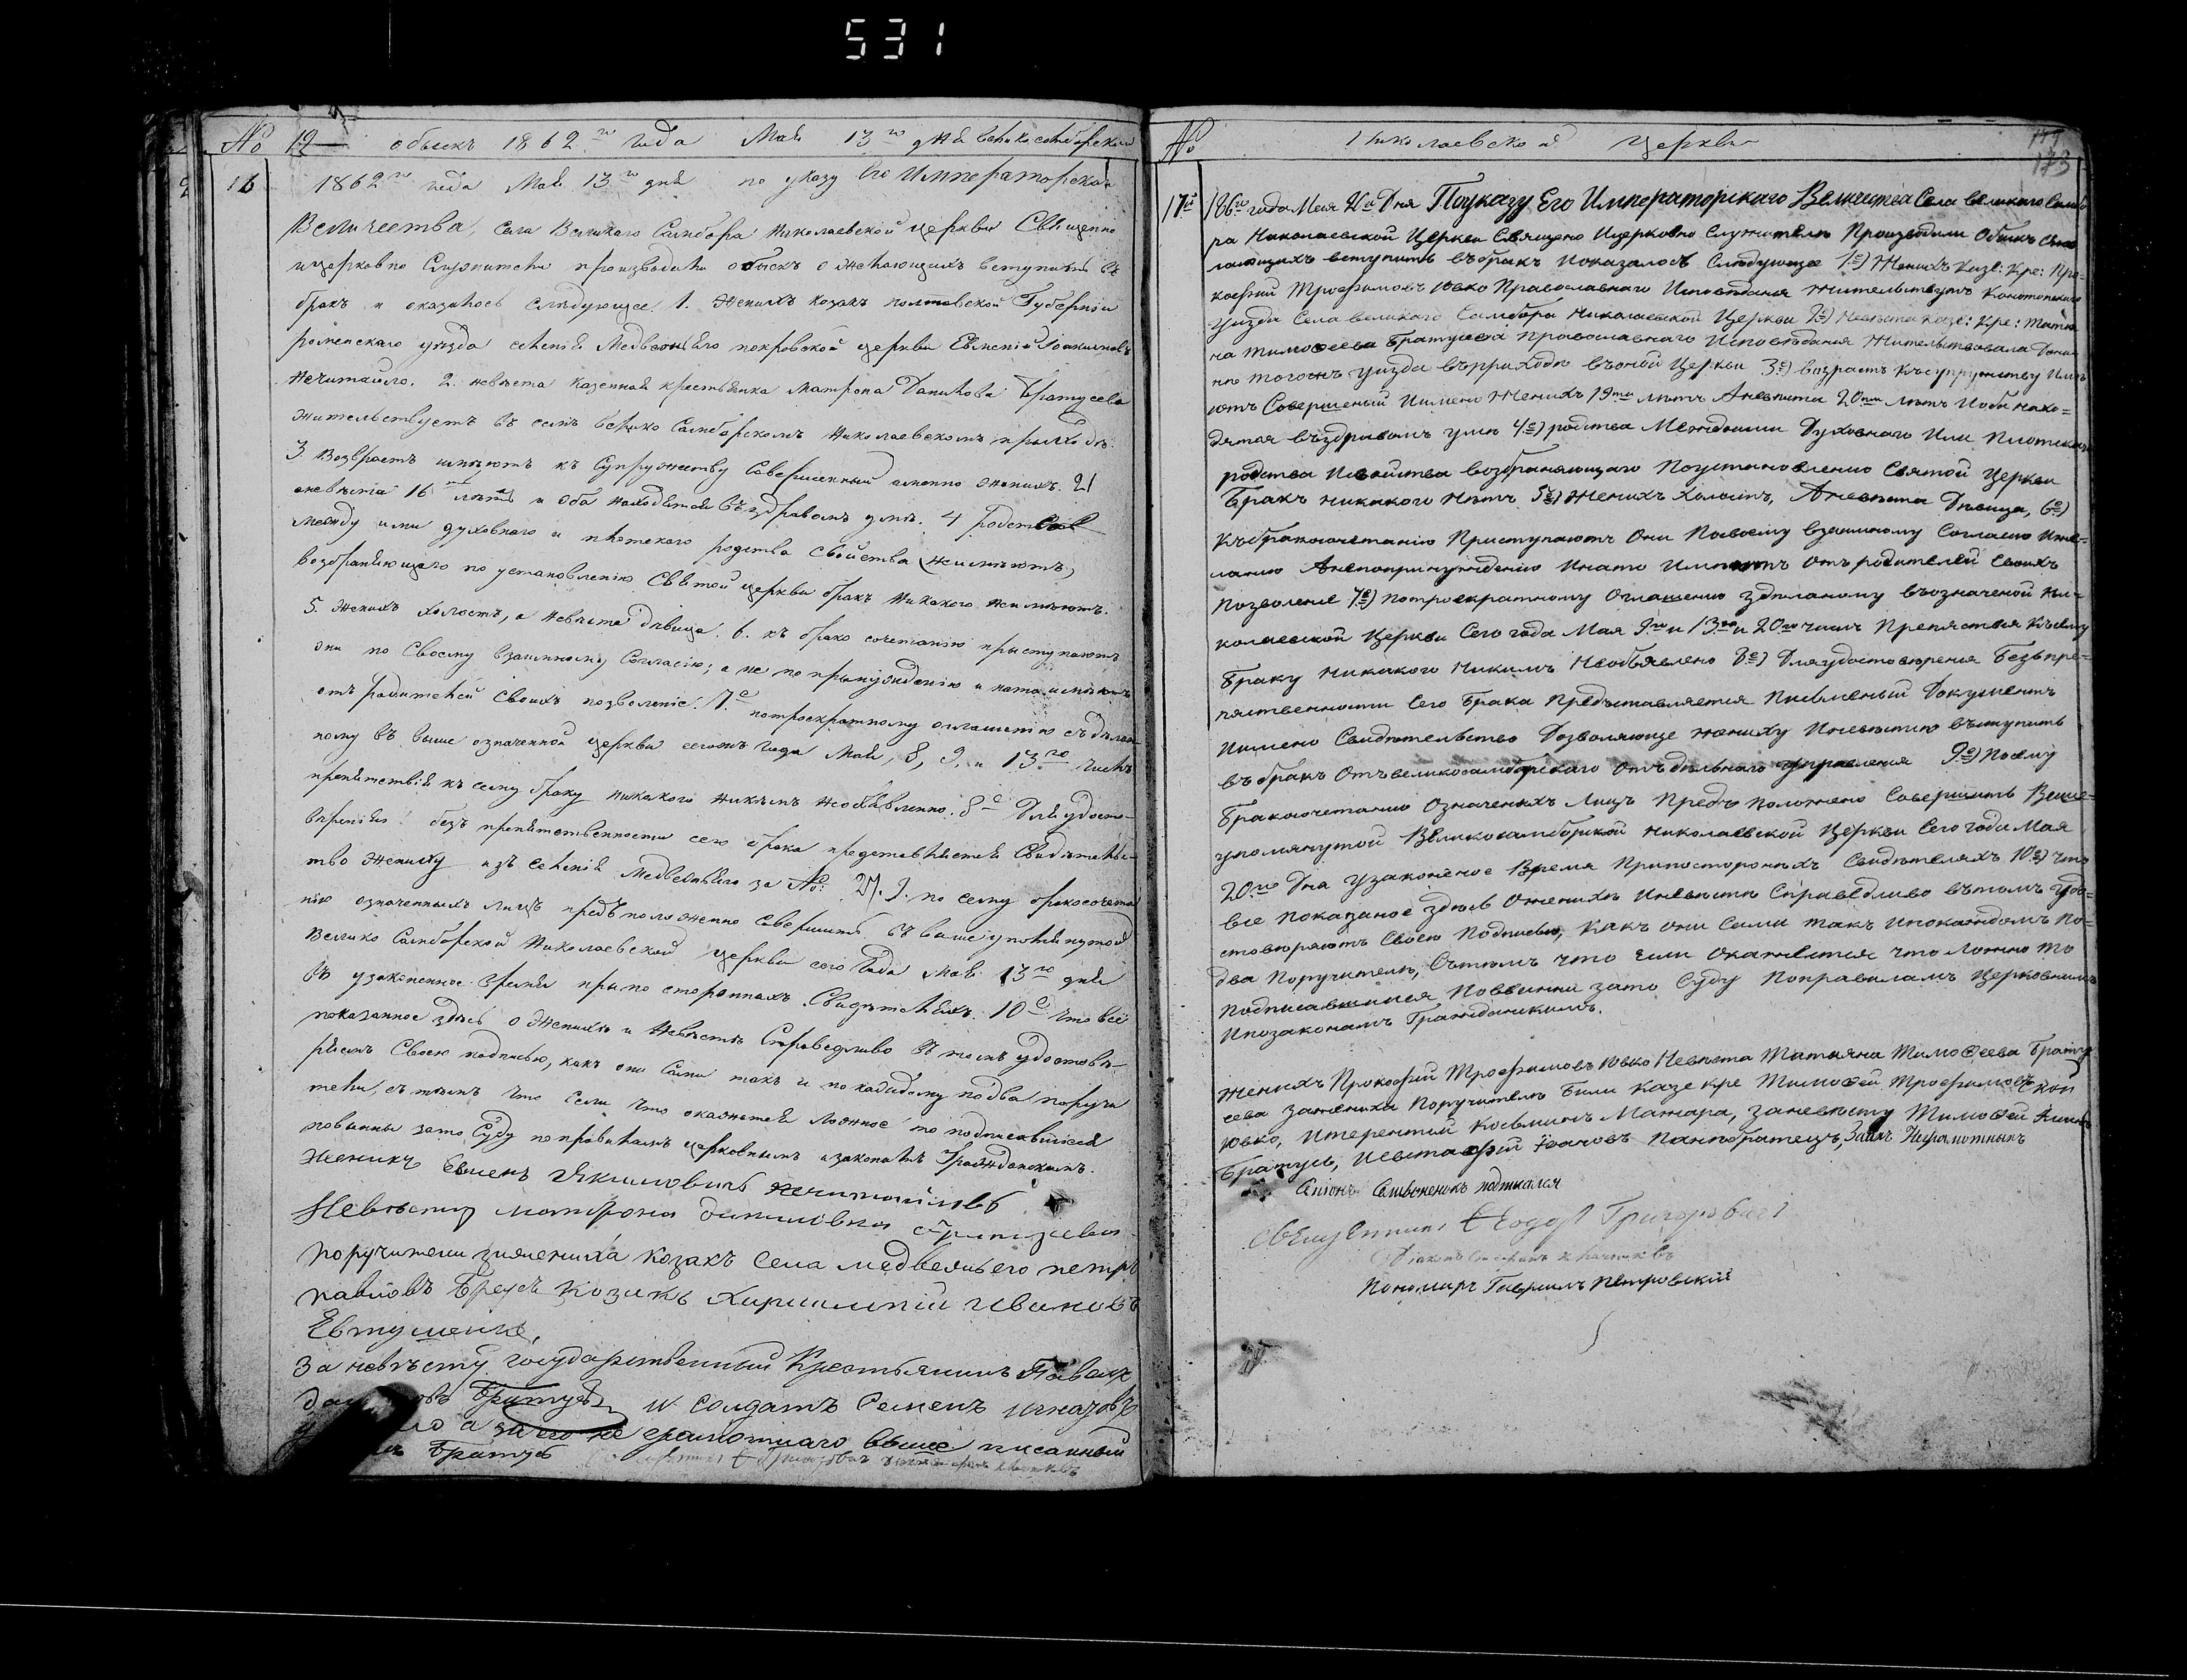 531
No 12 обыскъ 1862го Года Мая 13го дня великосамборской
16 1862го года Мая 13го дня по указу Его Императорскаго
Величества, села Великаго Самбора Николаевской церкви Священно
и церковно служители производили обыскъ о желающихъ вступить въ
бракъ и оказалось слѣдующее. 1. Женихъ козакъ полтавской Губерніи
роменскаго уезда селенія Медвежьяго покровской церкви Евменій Іоакимовъ
Нечитайло. 2. невѣста казенная крестьянка Матрона Данилова Братусева
жительствуетъ въ семъ велико Самборскомъ Николаевскомъ приходѣ.
3. Возврастъ имѣютъ къ Супружеству Совершенный именно женихъ. 21
а невѣста 16 лѣтъ и оба находятся въ здравомъ умѣ. 4 родства
между ими духовнаго и плотскаго родства свойства (неимѣютъ)
возбраняющаго по установленію Святой церкви бракъ никакого неимѣютъ.
5. женихъ холостъ, а невѣста дѣвица. 6. къ брако сочетанію приступаютъ
они по Своему взаимному Согласію; а не по принужденію и нато имѣютъ
отъ родителей своихъ позволеніе. 7е потроекратному оглашенію сдѣлан
ному въ выше означенной церкви сегожъ года Мая, 8, 9, и 13го числъ
препятствія къ сему браку никакого никѣмъ необъявленно. 8е Для удосто-
веренія безъ препятственности сего брака представляется Свидѣтельс-
тво жениху изъ селенія Медвежьяго за №: 279. по сему бракосочета
нію означенныхъ лицъ предъположенно совершить въ вышеупомянутой
Велико Самборской Николаевской церкви сего года Мая 13го дня
въ узаконенное время при по стороннихъ Свидѣтеляхъ. 10е что всё
показанное здѣсь о Женихѣ и Невѣстѣ Справедливо въ томъ удостовѣ-
ряемъ Своею подписью, какъ они Сами такъ и по каждому по два поручи
тели, съ тѣмъ что Если что окажется ложное то подписавшіися
повинны зато Суду по правиламъ церковнымъ и законамъ Гражданскимъ.
Женихъ Евменъ Якимовичъ нечитайловъ
Невѣста матрона даниловна братусева
поручители зажениха козакъ села медвежьего петръ
павловъ козакъ Ивановъ
Евтушенко,
За невѣсту государственный Крестьянинъ Павелъ
Братусь и солдатъ Семенъ игнатовъ
а за его не грамотнаго выше писанный
Братусь
No Николаевской Церкви 173
17й 186го года Мая 20го Дня Поуказу Его Императорскаго Величества Села великаго Самбо
ра Николаевской Церкви Священо Ицерковно Служители Производили Обыскъ ожи
лающихъ вступить въбракъ Показалось Слѣдующе 1е) Женихъ Казе: Кре: Про-
кофий Трофимовъ Ювко Православнаго Исповѣданія Жительствуетъ Конотопскаго
Уизда Села великаго Самбора Николаевской Церкви 2е) Невѣста Казе: Кре: Татья
на Тимофеева Братусева Православнаго Исповѣданія Жительствовала Доны
не тогожъ уизда въприходѣ въоной Церкви 3е) возрастъ Къ супружеству Имѣ
ютъ Совершеный Имено Женихъ 19ти лѣтъ Аневѣста 20ти лѣтъ Иоба нахо-
дятся въздравомъ умѣ 4е) родства Междоими Духовнаго Или Плотскаго
родства Исвойства возбраняющаго Поустановленію Святой Церкви
Бракъ никакого Нѣтъ 5е) Женихъ Холостъ, Аневѣста Дѣвица, 6е)
Къбракосочетанію Приступаютъ Они Посвоему взаимному Согласію Ижи-
ланію Анепопринуждению Инато Имѣютъ Отъ родителей своихъ
Позволеніе 7е) Потроекратному Оглашенію здѣланому възначеной Ни-
колаевской Церкви Сего года Мая 9го и 13го и 20го числъ Препятствия Къ сему
Браку Никакого Никимъ Необъявлено 8е) Дляудостовѣренія Безъпре-
пятственности Сего Брака Предъставляется Писменый Документъ
Имено Свидѣтельство Дозволяюще жениху Иневѣстѣ въступить
въбракъ Отъвеликосамборскаго Отъдѣльнаго Управленія 9е) Посему
Бракосочетанию Означеныхъ Лицъ Предъ положено Совершить Выше-
упомянутой Великосамборской Николаевской Церкви Сего года Мая
20го Дня Узаконеное Время Припостороныхъ Свидѣтеляхъ 10е) Что
все Показаное здѣсь Оженихѣ Иневѣстѣ Справедливо вътомъ удо-
стовѣряютъ Своею Подписью, Какъ они Сами Такъ Ипокаждомъ По-
два Поручителю, Сътѣмъ что Если Окажется что Ложно то
Подписавшиися Повинни зато Суду Поправиламъ Церковнымъ
Ипозаконамъ Гражданскимъ.
Женихъ Прокофий Трофимовъ Ювко Невѣста Татьяна Тимофеева Брату
сева Зажениха Поручители Били Казе Кре Тимофей Трофимовъ
Ювко, Итерентий Косьминъ Мажара, Заневѣсту Тимофей
Братусь, Иевстафий Ивановъ Панибратецъ, Заихъ Неграмотныхъ
подписался
Священникъ Ѳеодоръ Григоровичъ
Пономаръ Гавриилъ Петровский